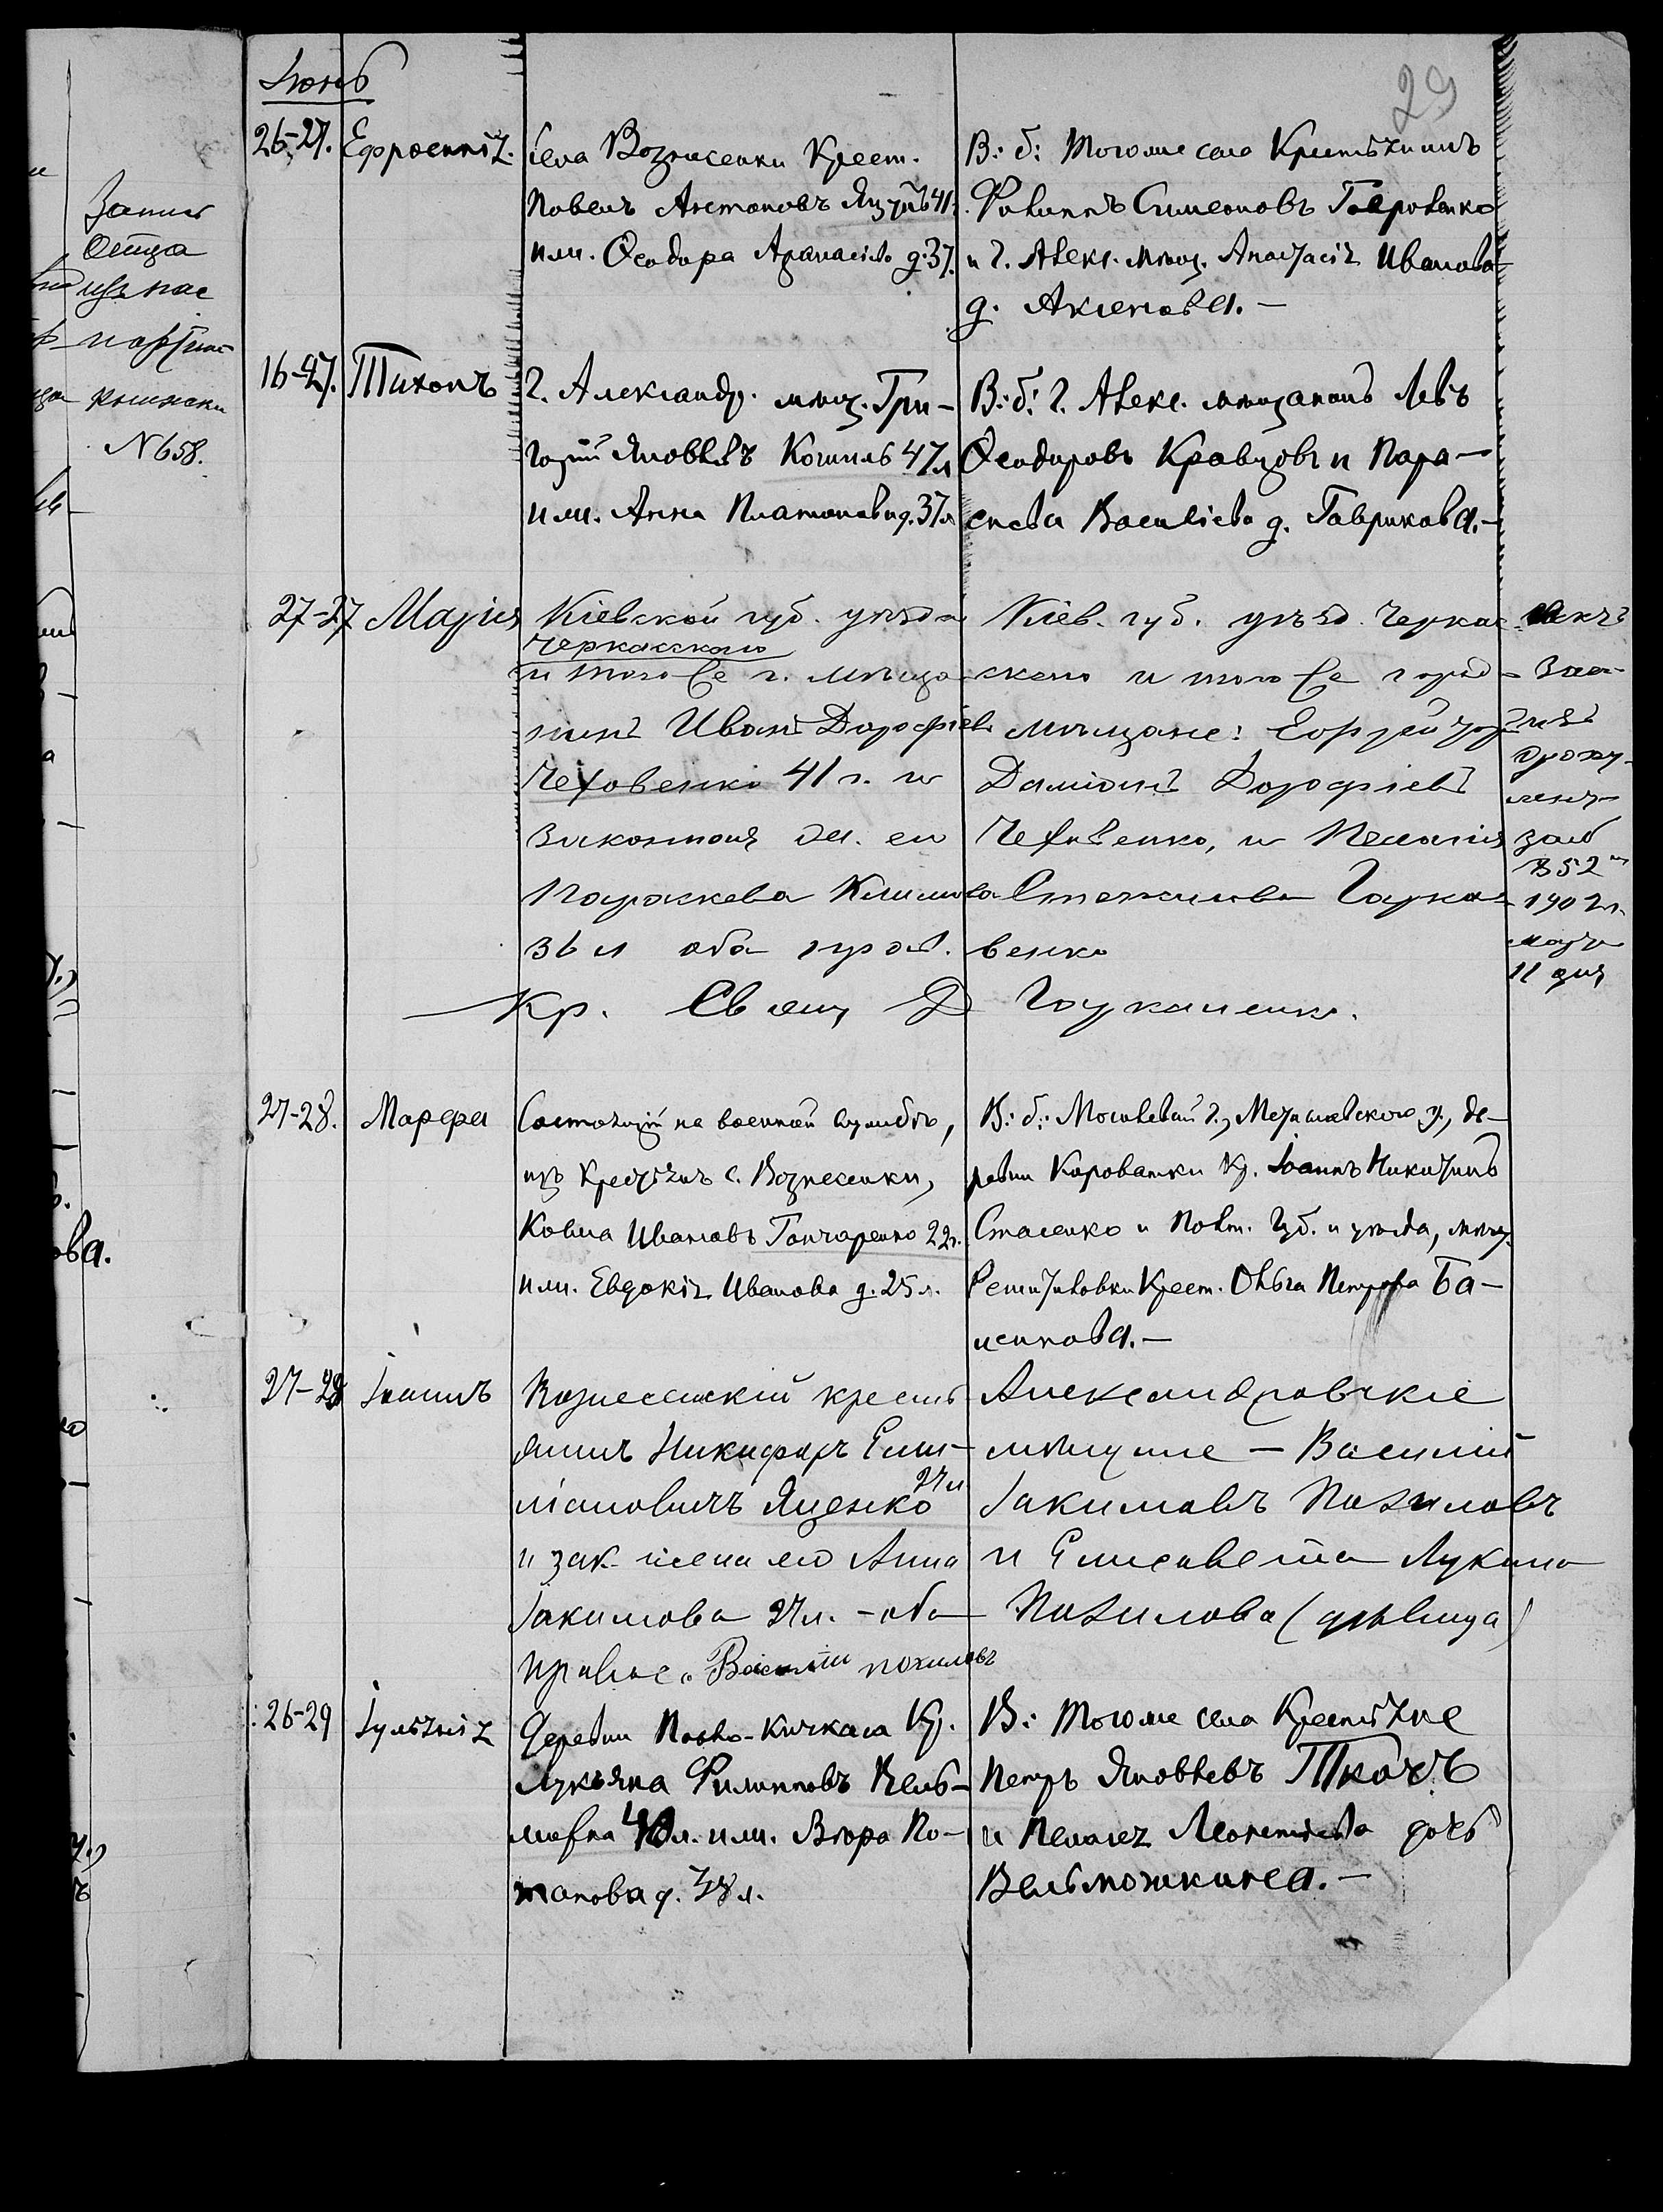 29
Іюнь
Запись
Отца
№658.
26-27. Ефросинія.
села Вознесенки Крест.
Павелъ Антоновъ Яцунъ 41 г.
и ж. Ѳеодора Аѳанасіева д. 37.
В: б: того же села Крестьянинъ
Филиппъ Симеоновъ Гавровенко
и г. Алекс. мѣщ. Анастасія Иванова
д. Аксенова.—
16-27. Тихонъ
г. Александр. мѣщ. Гри-
горій Яковлевъ Кошиль 47 л
и ж. Анна Платонова д. 37 л
В: б: г. Алекс. мѣщанинъ Левъ
Ѳеодоровъ Кравцовъ и Пара-
скева Василіева д. Гаврикова.—
27-27 Марія
Кіевской губ. уѣзда
Черкасскаго
и того же г. мѣща-
нинъ Иванъ Дорофіевъ
Чеховенко 41 г. и
законная ж. его
Параскева Климова
36 л оба прав.
Кіев. губ. уѣзд. Черкас-
скаго и того же города
мѣщане:
Даміанъ Дорофіевъ
Чеховенко, и Пелагія
венко
въ 52
1902 г.
марта
11 дня
Кр. Свящ.
27-28. Марфа
Состоящій на военной службѣ,
изъ Крестьянъ с. Вознесенки,
Косма Ивановъ Гончаренко 22 г.
и ж. Евдокія Иванова д. 25 л.
В: б: Могилевской г., Мстиславского у., де-
ревни Короватки Кр. Іоаннъ Никитинъ
Стасенко и Полт. Губ. и уѣзда, мѣст.
Решетиловки Крест. Ольга Петрова Ба-
исикова.—
27-28 Іоаннъ
Вознесенскій кресть-
янинъ Никифоръ Еми-
ліановичъ Яценко 27 л
и зак. жена его Анна
Іакимова 27 л. - оба
правос. Василій Похиловъ
Александровскіе
мѣщане — Василій
Іакимовъ Похиловъ
и Елисавета Лукина
Похилова (дѣвица)
26-29 Іуліанія
Деревни Павло-Кичкаса Кр.
Лукьянъ Филипповъ Вель-
можка 40 л. и ж. Вѣра По-
тапова д. 38 л.
В: того же села Крестьяне
Петръ Яковлевъ Ткачъ
и Пелагія Леонтіева дочь
Вельможкина.—